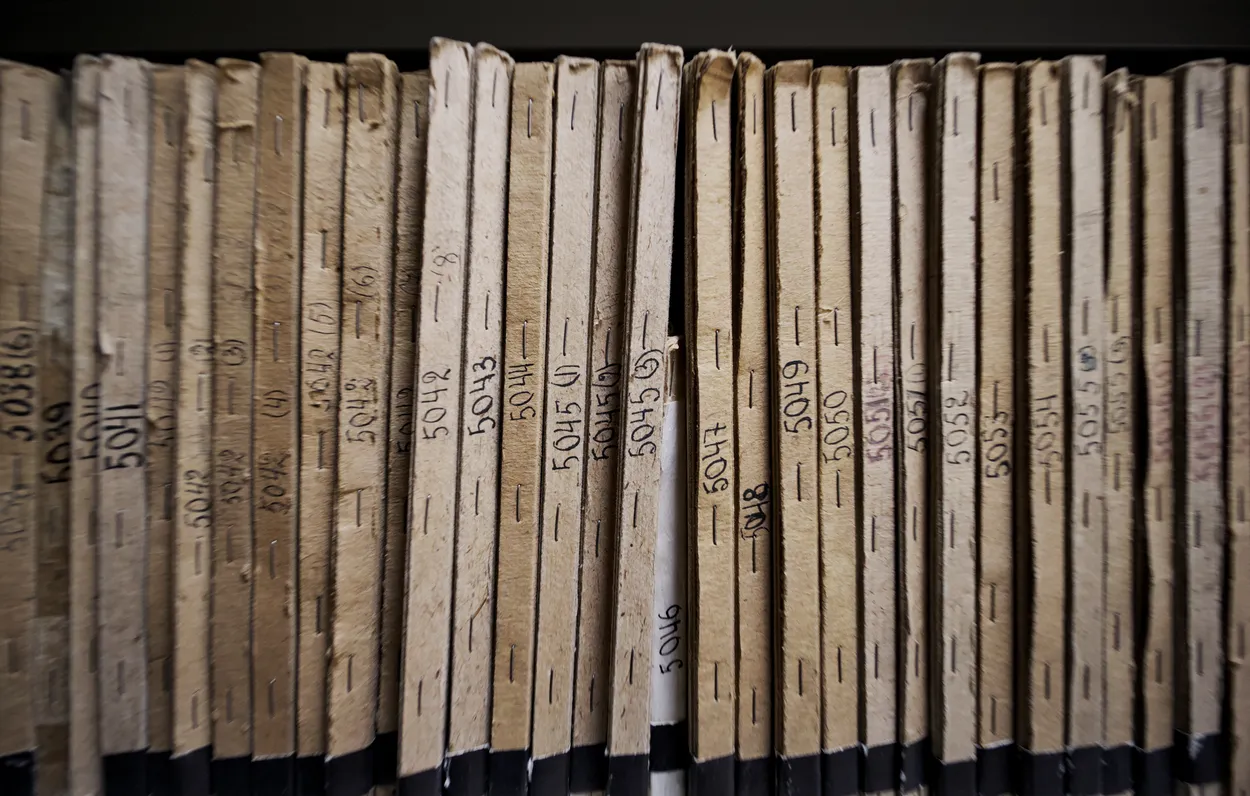 5038(6)
5039
5040
5041
5042
5042 (3)
5042 (4)
5042 (5)
5042 (6)
5042
5042 (8)
5043
5044
5045 (1)
5045 (2)
5045 (3)
5046
5047
5048
5049
5050
5051
5052
5053
5054
5055
5055